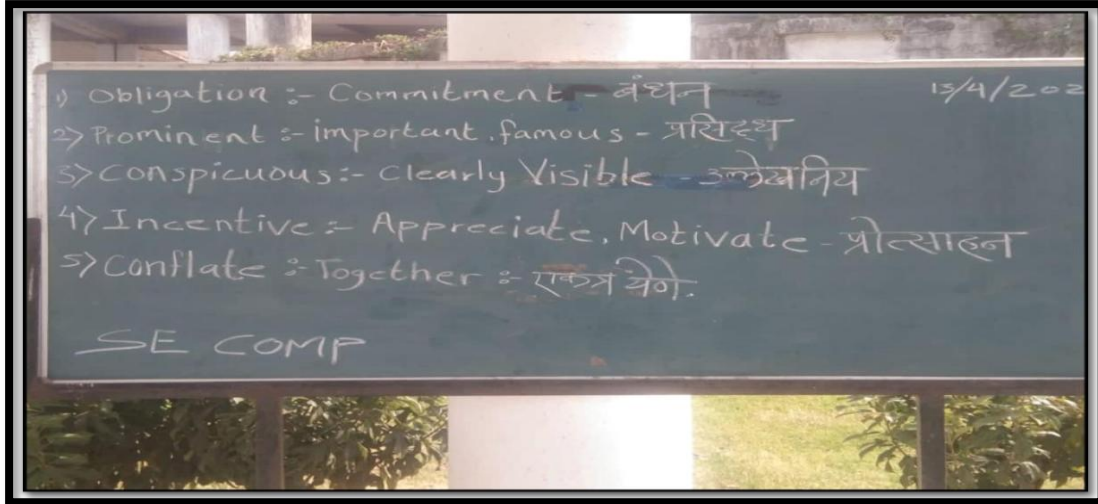 15/4/202
1) Obligation :- Commitment - बंधन
2) Prominent :- important, famous - प्रसिद्ध
3) Conspicuous :- Clearly Visible - उल्लेखनिय
4) Incentive :- Appreciate, Motivate - प्रोत्साहन
5) Conflate :- Together :- एकत्र येणे.
SE COMP